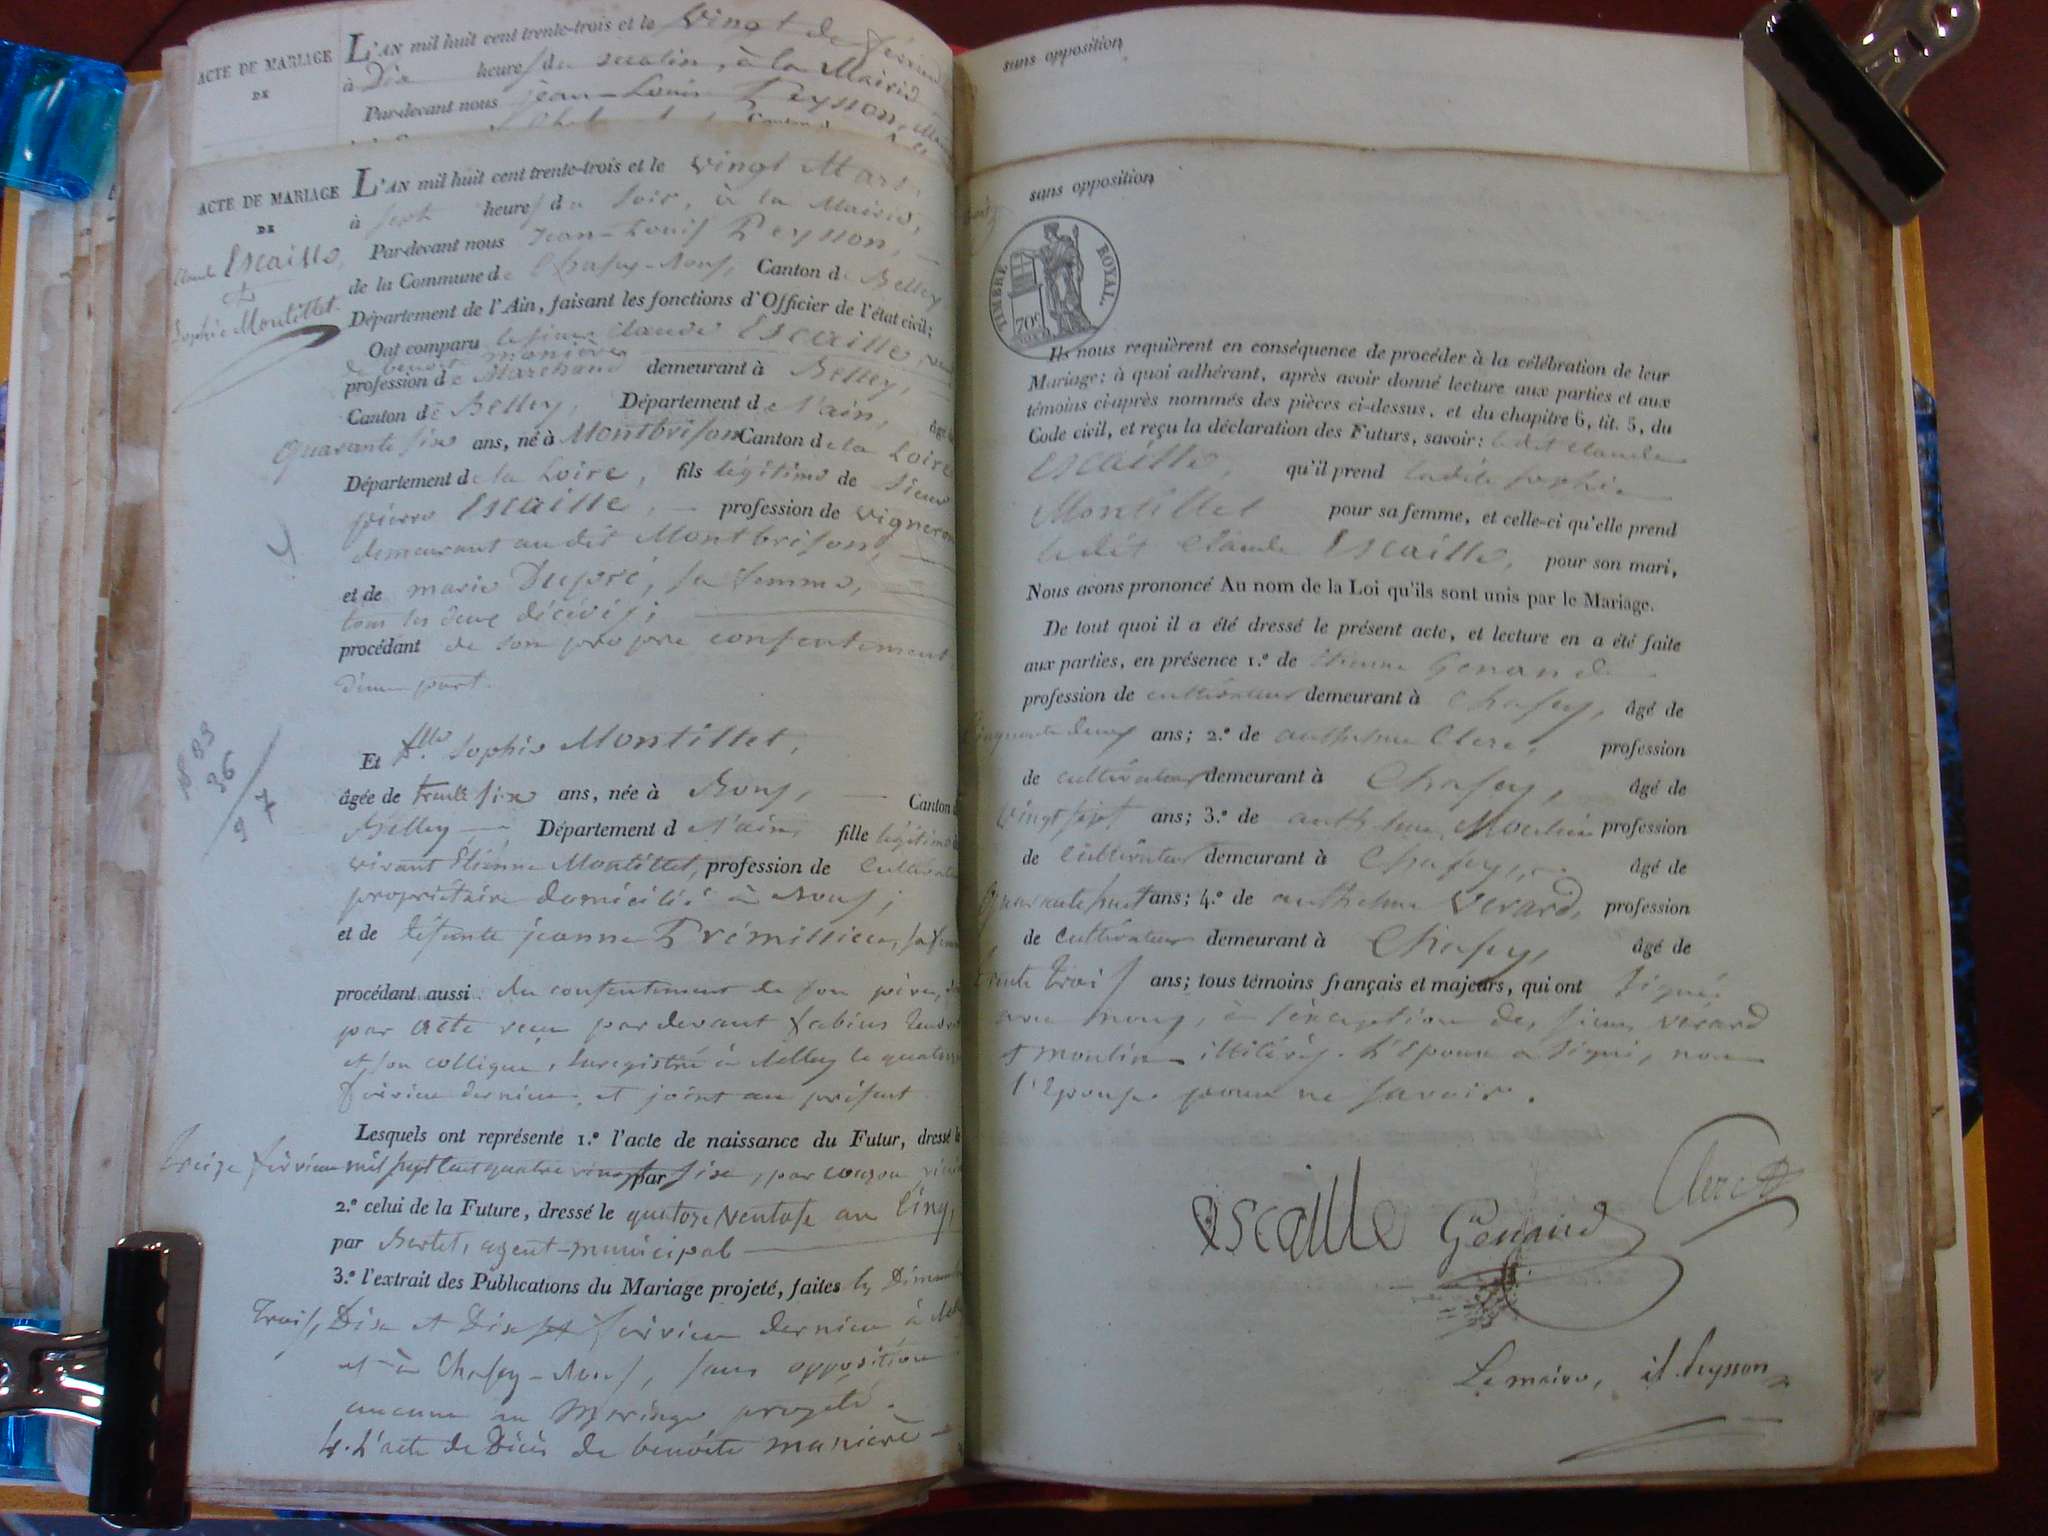 ACTE DE MARIAGE
DE
L'AN mil huit cent trente-trois et le Vingt de février
à Dix heures du matin, à la Mairie
Par-devant nous jean-Louis Peysson,
sans opposition
ACTE DE MARIAGE
DE
Claude Escaille,
&
Sophie Montillet.
L'AN mil huit cent trente-trois et le vingt Mars,
à sept heures du soir, à la Mairie,
Par-devant nous Jean-Louis Peysson,
de la Commune de Chasey-Bons, Canton de Belley
Département de l'Ain, faisant les fonctions d'Officier de l'état civil;
Ont comparu le sieur Claude Escaille, veuf
de benoite manière
profession de Marchand demeurant à Belley,
Canton de Belley, Département de l'ain, âgé de
quarante six ans, né à Montbrison Canton de la Loire
Département de la Loire, fils légitime de sieur
pierre Escaille, profession de vigneron
demeurant au dit Montbrison,
et de marie Dupré, sa femme,
tous les deux décédés;
procédant de son propre consentement
d'une part.
Et Dlle Sophie Montillet,
âgée de trente six ans, née à Bons, Canton de
Belley Département de l'ain, fille légitime de
vivant Etienne Montillet, profession de cultivateur
propriétaire domicilié à Bons;
et de défunte jeanne Prémillieu, sa femme
procédant aussi du consentement de son père,
par acte reçu pardevant fabius
et son collègue, Enregistré à Belley le quatorze
février dernier, et joint au présent
Lesquels ont représenté 1.º l'acte de naissance du Futur, dressé le
treize février mil sept cent quatre vingt six, par couzon,
2.º celui de la Future, dressé le quatorze Ventose an cinq,
par Bertet, agent-municipal
3.º l'extrait des Publications du Mariage projeté, faites les Dimanches
Trois, Dix et Dix sept février dernier à Belley
et à Chasey-Bons, sans opposition
aucune au Mariage projeté.
4. L'acte de Décès de benoite manière
1833
36
97
sans opposition
TIMBRE ROYAL
70c
Ils nous requièrent en conséquence de procéder à la célébration de leur
Mariage: à quoi adhérant, après avoir donné lecture aux parties et aux
témoins ci-après nommés des pièces ci-dessus, et du chapitre 6, tit. 5, du
Code civil, et reçu la déclaration des Futurs, savoir: le dit claude
Escaille, qu'il prend ladite sophie
Montillet pour sa femme, et celle-ci qu'elle prend
le dit Claude Escaille, pour son mari,
Nous avons prononcé Au nom de la Loi qu'ils sont unis par le Mariage.
De tout quoi il a été dressé le présent acte, et lecture en a été faite
aux parties, en présence 1.º de Etienne Genand
profession de cultivateur demeurant à Chasey, âgé de
Cinquante deux ans; 2.º de anthelme Clerc, profession
de cultivateur demeurant à Chasey, âgé de
Vingt sept ans; 3.º de anthelme Moulin profession
de cultivateur demeurant à Chasey, âgé de
Quarante huit ans; 4.º de anthelme Verard, profession
de cultivateur demeurant à Chasey, âgé de
trente trois ans; tous témoins français et majeurs, qui ont signé
avec nous, à l'exception des sieurs verard
& moulin illitérés. L'Epoux a signé, non
l'Epouse pour ne savoir.
escaille Genand Clerc
Le maire, jl peysson